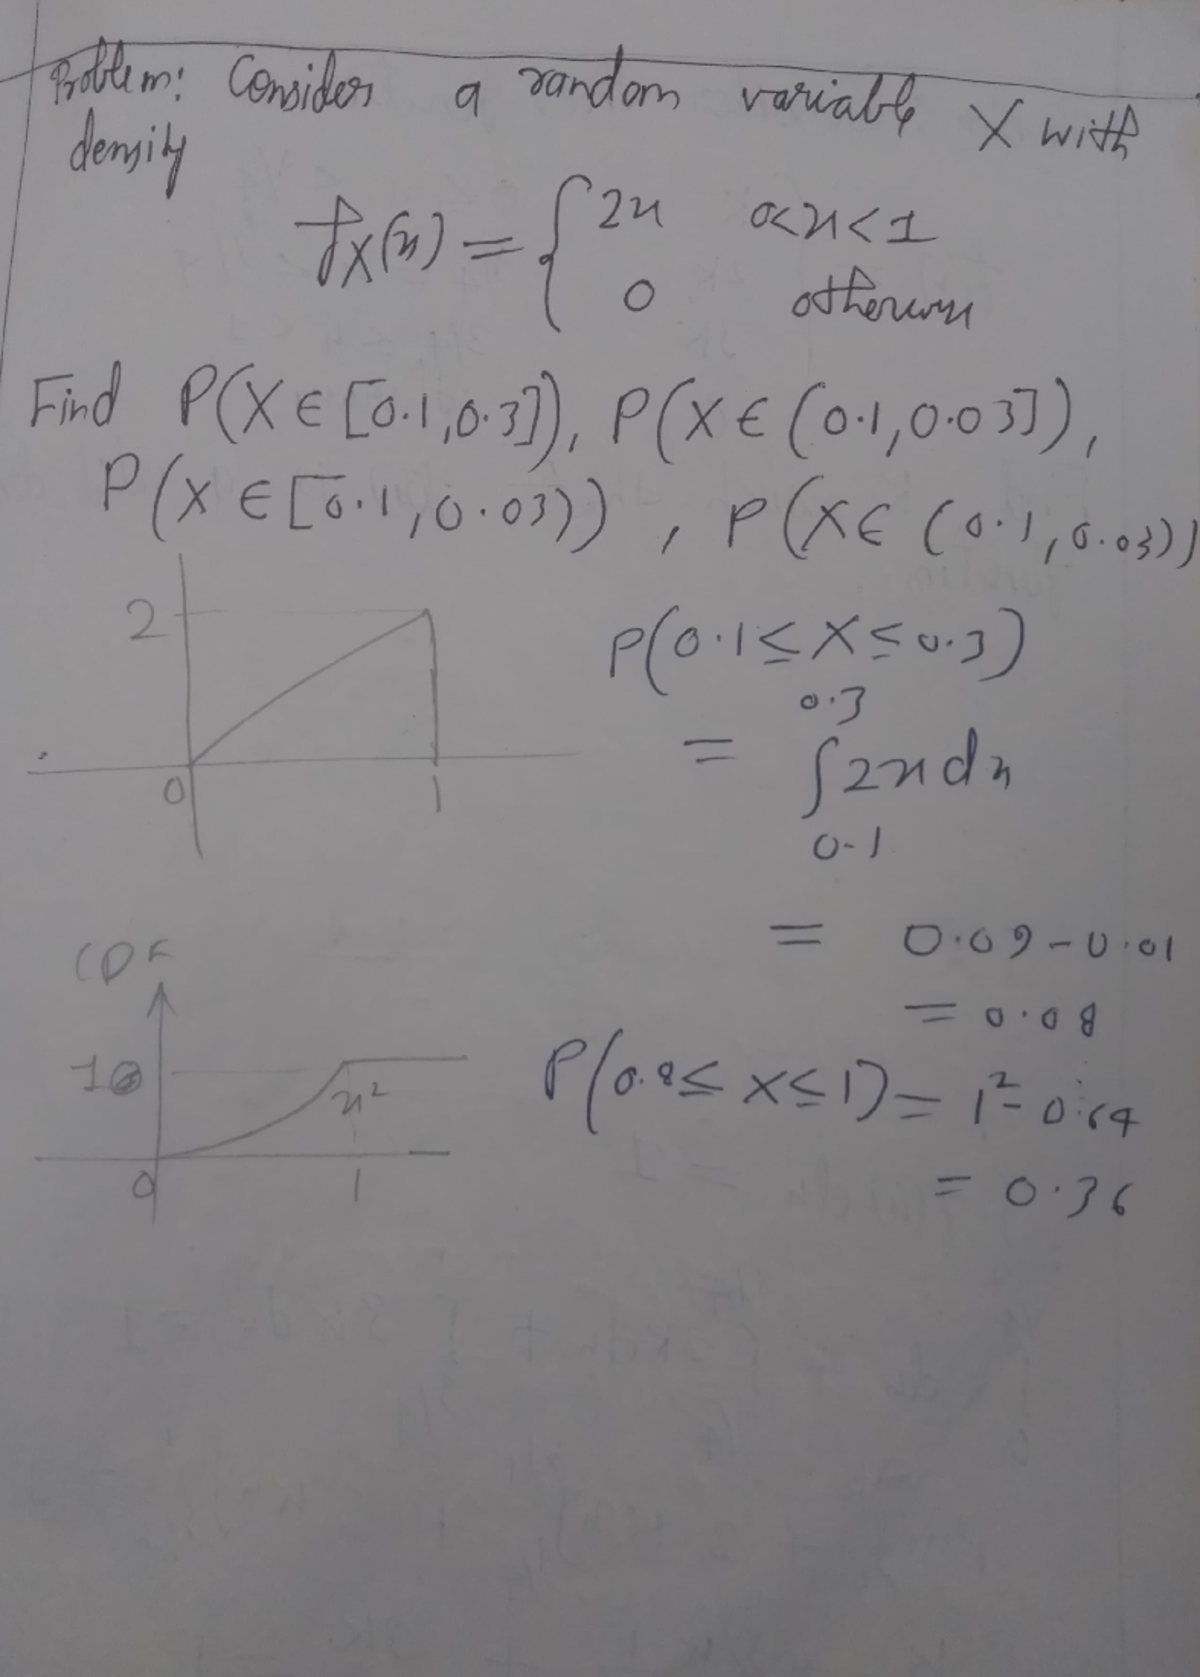 Problem: Consider a random variable X with
density
f_X(x) = { 2x 0<x<1
0 otherwise
Find P(X ∈ [0.1,0.3]), P(X ∈ (0.1,0.03]),
P(X ∈ [0.1,0.03)) , P(X ∈ (0.1,0.03))
2
0
1
P(0.1 ≤ X ≤ 0.3)
= ∫_{0.1}^{0.3} 2x dx
= 0.09 - 0.01
= 0.08
CDF
1
x²
0
1
P(0.8 ≤ X ≤ 1) = 1² - 0.64
= 0.36